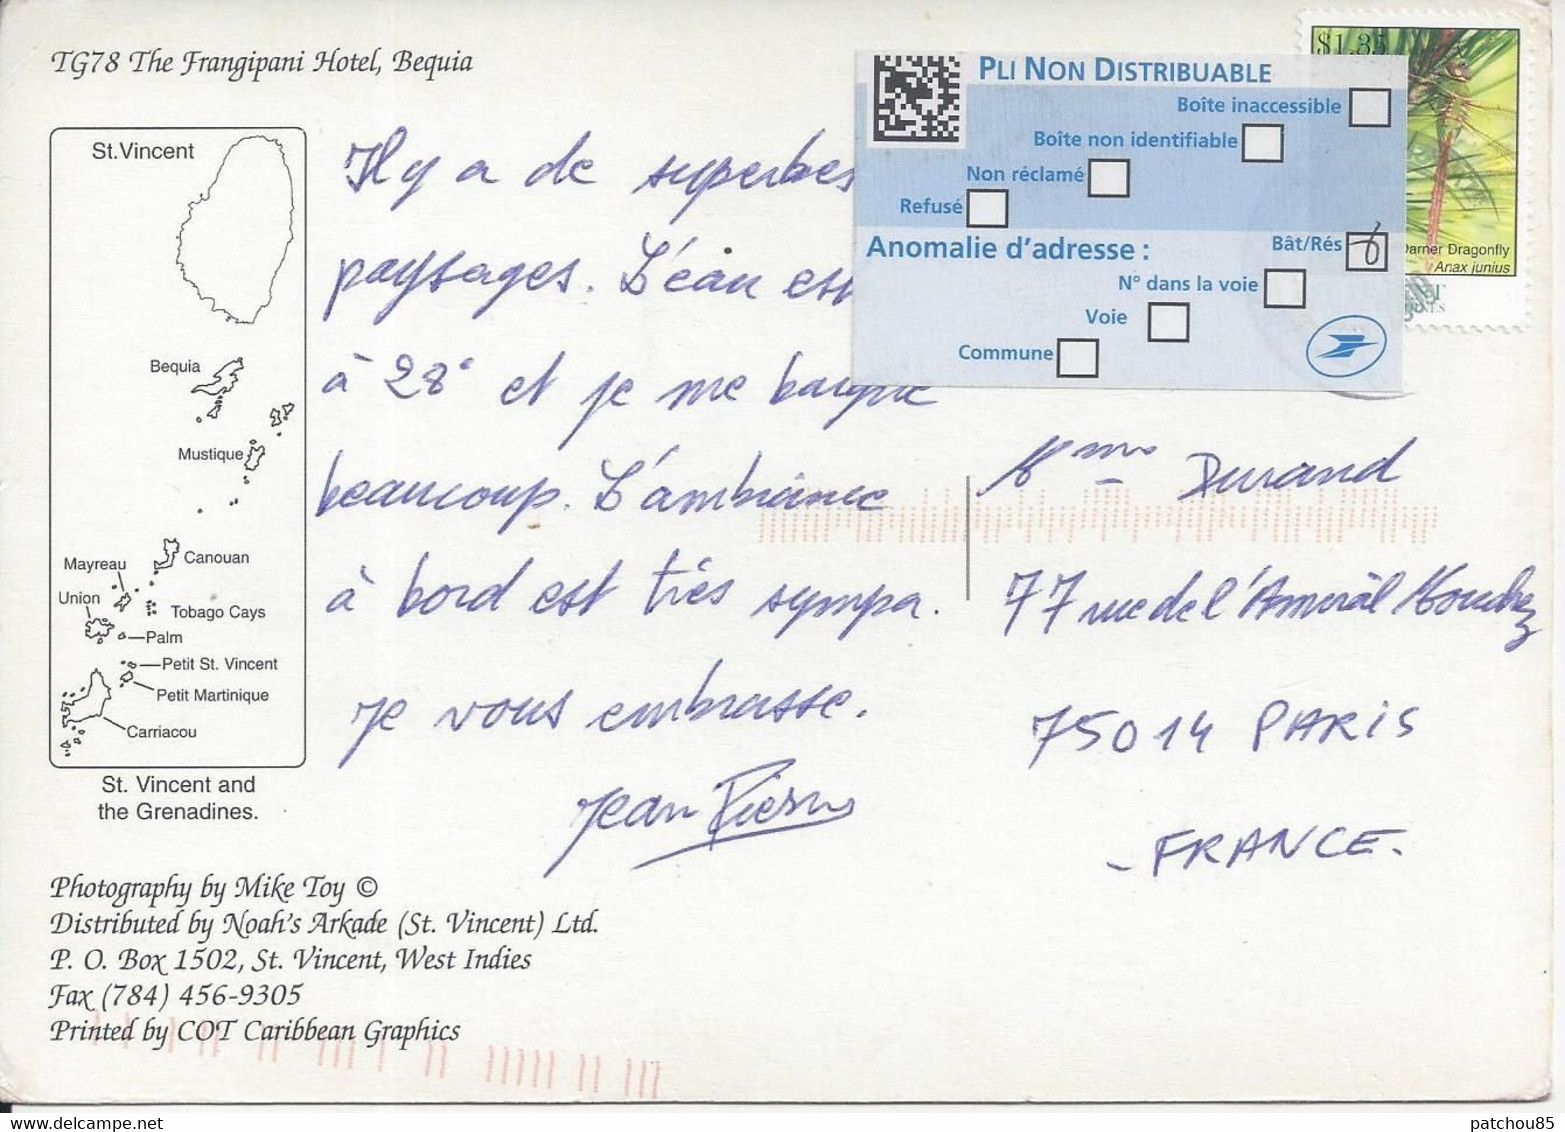 TG78 The Frangipani Hotel, Bequia
St.Vincent
Bequia
Mustique
Canouan
Mayreau
Union
Tobago Cays
Palm
Petit St. Vincent
Petit Martinique
Carriacou
St. Vincent and
the Grenadines.
Il y a de superbes
paysages. L'eau est
à 28° et je me baigne
beaucoup. L'ambiance
à bord est très sympa.
Je vous embrasse.
Jean Pierre
PLI NON DISTRIBUABLE
Boîte inaccessible
Boîte non identifiable
Non réclamé
Refusé
Anomalie d'adresse :
Bât/Rés
N° dans la voie
Voie
Commune
$1.35
Darner Dragonfly
Anax junius
Mme Durand
77 rue de l'Amiral Mouchez
75014 PARIS
- FRANCE.
Photography by Mike Toy ©
Distributed by Noah's Arkade (St. Vincent) Ltd.
P. O. Box 1502, St. Vincent, West Indies
Fax (784) 456-9305
Printed by COT Caribbean Graphics
patchou85